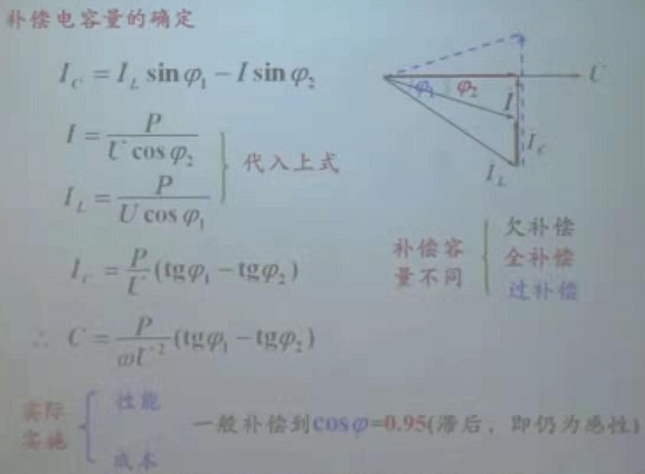 补偿电容量的确定
I_C = I_L sinφ₁ − I sinφ₂
I = P / (U cosφ₂)
I_L = P / (U cosφ₁)
代入上式
I_C = P/U (tgφ₁ − tgφ₂)
∴ C = P/(ωU²) (tgφ₁ − tgφ₂)
φ₁ φ₂ U
I
I_C
I_L
补偿容
量不同
欠补偿
全补偿
过补偿
实际
实施
性能
成本
一般补偿到cosφ=0.95(滞后，即仍为感性)